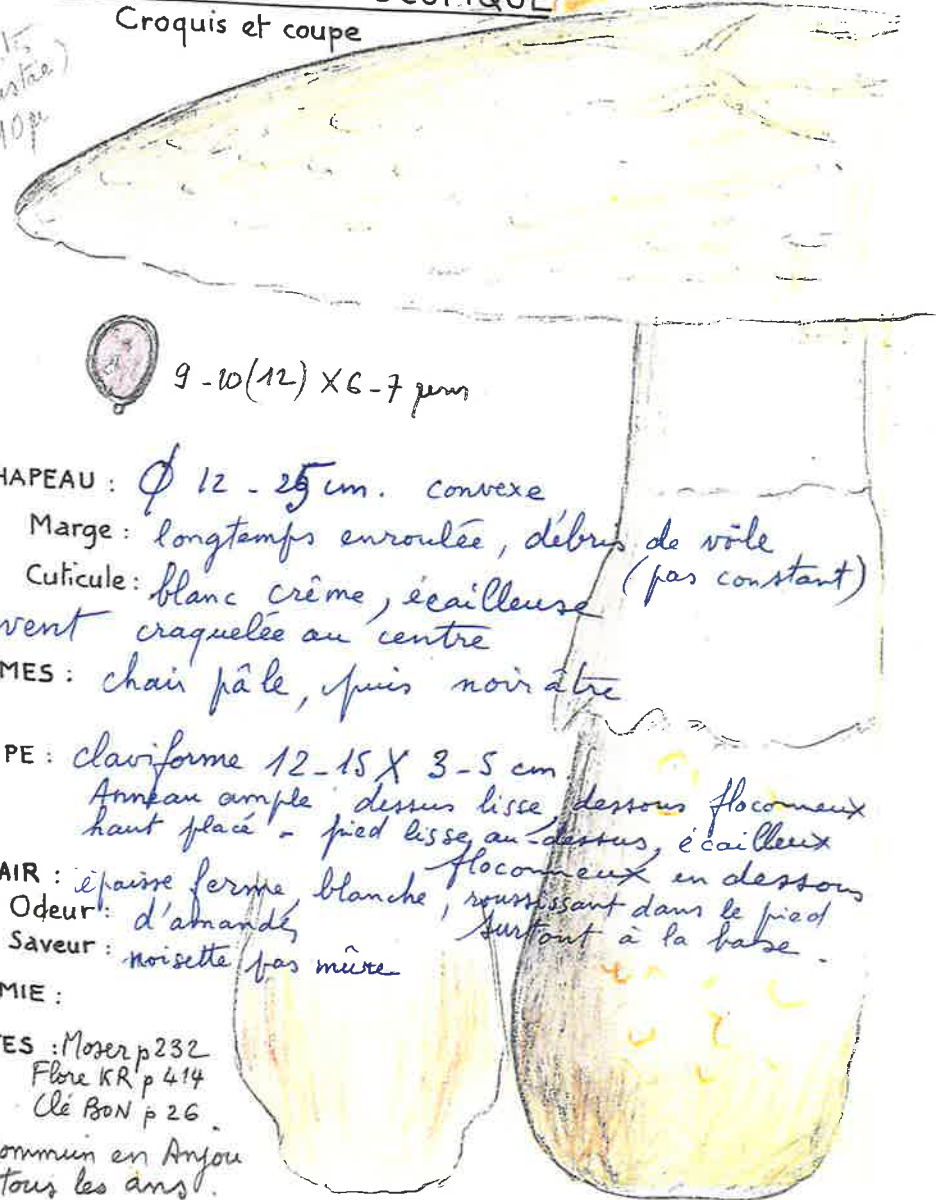 Croquis et coupe
10µ
9-10(12) X 6-7 µm
HAPEAU : Ø 12 - 25 cm. convexe
Marge : longtemps enroulée, débris de voile
(pas constant)
Cuticule : blanc crême, écailleuse
vent craquelée au centre
MES : chair pâle, puis noirâtre
PE : claviforme 12-15 X 3-5 cm
Anneau ample dessus lisse, dessous floconneux
haut placé - pied lisse au-dessus, écailleux
floconneux en dessous
AIR : épaisse ferme, blanche, roussissant dans le pied
surtout à la base.
Odeur : d'amandes
Saveur : noisette pas mûre
MIE :
ES : Moser p 232
Flore KR p 414
Clé BON p 26.
ommun en Anjou
tous les ans.